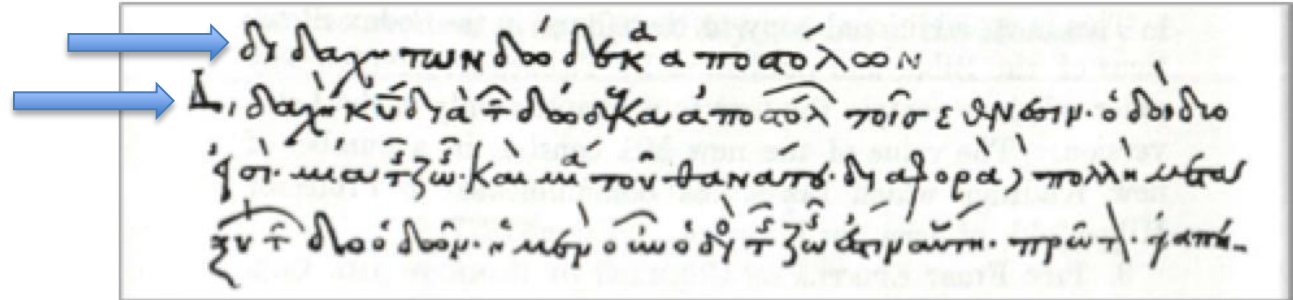 διδαχὴ τῶν δώδεκα ἀποστόλων
Διδαχὴ κ̅υ̅ διὰ τ̅ δώδεκα ἀποστόλ τοῖσ ἔθνεσιν· ὁδοὶ δύο
εἰσί· μία τ ζω· καὶ μία τοῦ θανάτου· διαφορὰ πολλὴ μετα
ξὺ τ δύο ὁδῶν· ἡ μὲν οὖν ὁδὸσ τ ζω ἐστιν αὕτη· πρῶτ·